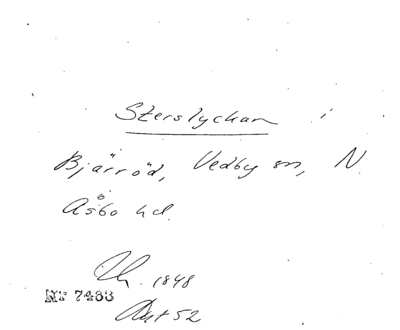 Sterslyckan i
Bjärröd, Vedby sn, N.
Åsbo hd.
1848
Nr 7483
Akt 52